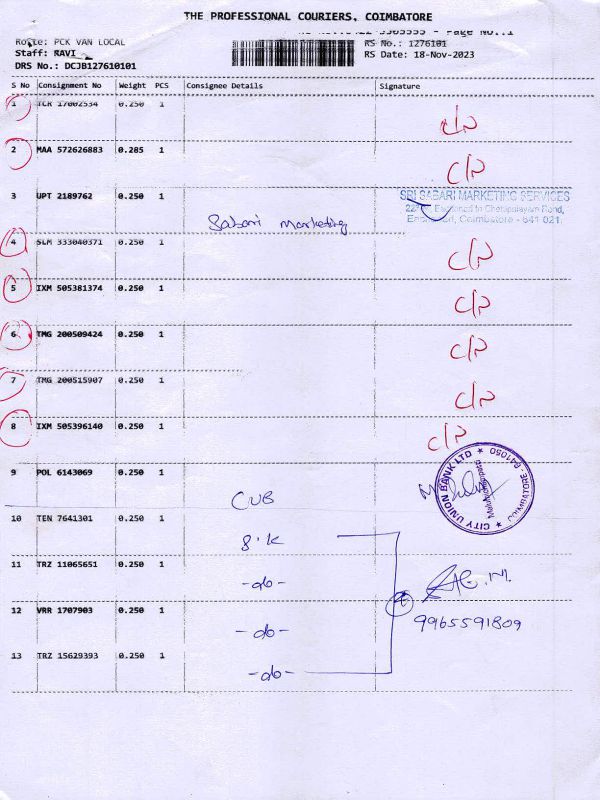 THE PROFESSIONAL COURIERS, COIMBATORE
Page No.:1
Route: PCK VAN LOCAL
RS No.: 1276101
Staff: RAVI
RS Date: 18-Nov-2023
DRS No.: DCJB127610101
S No Consignment No Weight PCS Consignee Details Signature
1 TCR 17002534 0.250 1 C/R
2 MAA 572626883 0.285 1 C/R
3 UPT 2189762 0.250 1 Sabari Marketing
SRI SABARI MARKETING SERVICES
Coimbatore - 641 021.
4 SLM 333040371 0.250 1 C/R
5 IXM 505381374 0.250 1 C/R
6 TMG 200509424 0.250 1 C/R
7 TMG 200515907 0.250 1 C/R
8 IXM 505396140 0.250 1 C/R
9 POL 6143069 0.250 1 CUB
CITY UNION BANK LTD ★ COIMBATORE - 641050 ★
10 TEN 7641301 0.250 1 S.K
11 TRZ 11065651 0.250 1 -do-
12 VRR 1707903 0.250 1 -do-
9965591809
13 TRZ 15629393 0.250 1 -do-